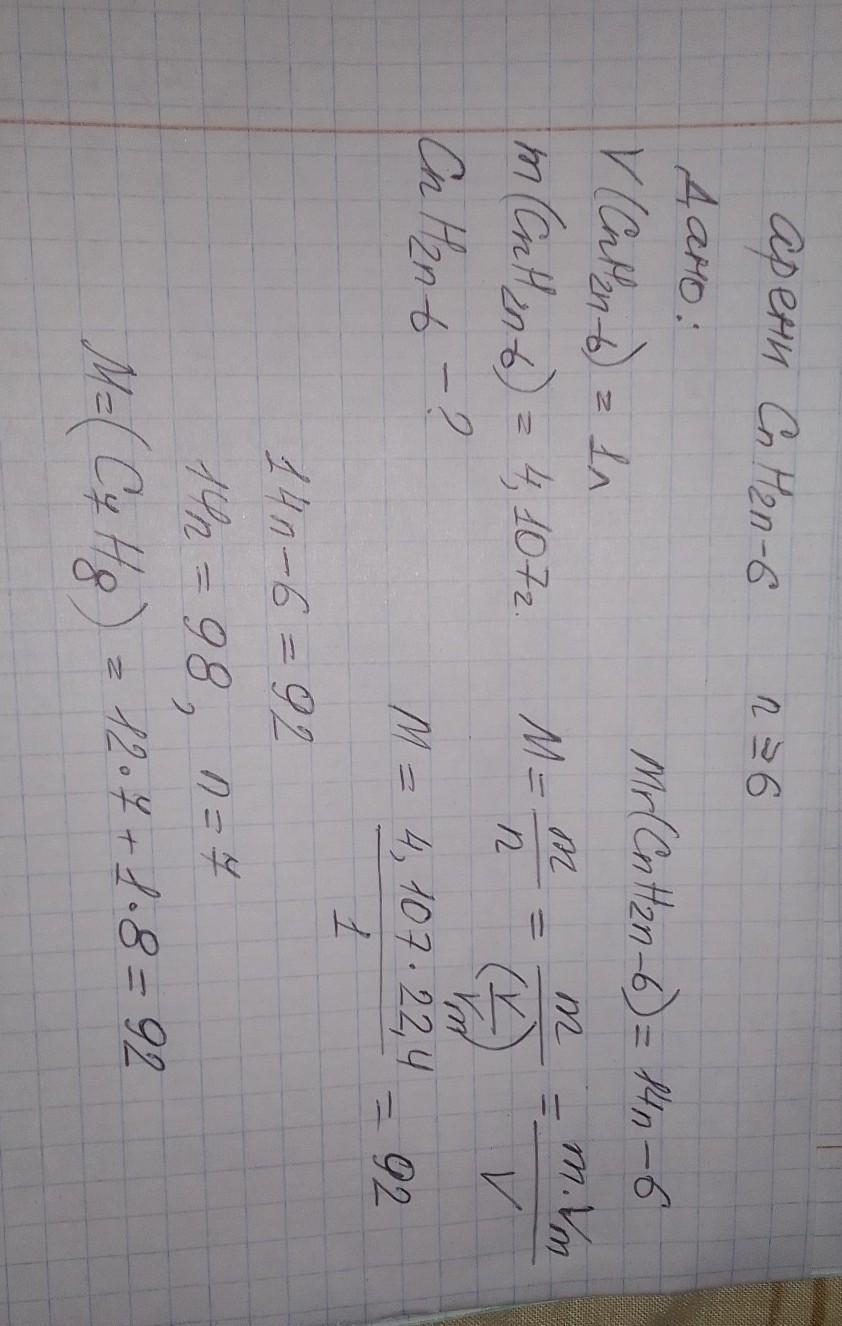 арени CnH2n-6 n ≥ 6
Дано:
V(CnH2n-6) = 1л
m(CnH2n-6) = 4,107г.
CnH2n-6 - ?
Mr(CnH2n-6) = 14n-6
M = m/n = m/(V/Vm) = m·Vm/V
M = 4,107·22,4/1 = 92
14n-6 = 92
14n = 98, n = 7
M=(C7H8) = 12·7+1·8 = 92